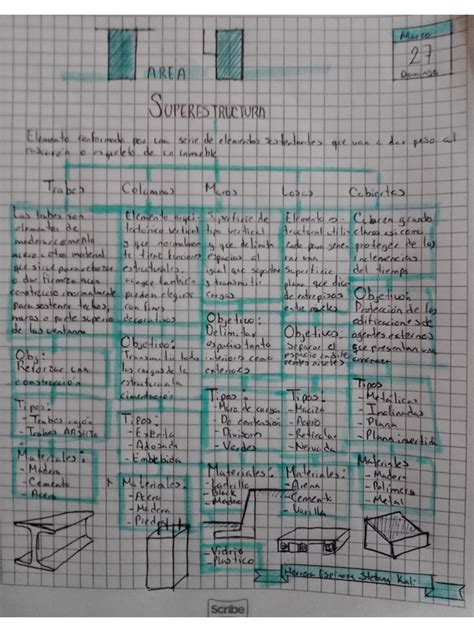 Marzo
27
Domingo
AREA
SUPERESTRUCTURA
Elemento conformado por una serie de elementos sustentantes que van a dar peso al
o esqueleto de la
Trabes
Las trabes son
elementos de
madera, cemento
acero u otro material
que sirve para reforzar
o dar firmeza a una
construcción normalmente
para sostener techos,
muros o parte superior
de las ventanas
Obj:
Reforzar una
construcción
Tipos:
- Trabes cajón
- Trabes AASHTO
Materiales:
- Madera
- Cemento
- Acero
Columnas
Elemento arqui-
tectónico vertical
y que normalmen
te tiene funciones
estructurales,
aunque también
pueden elegirse
con fines
decorativos
Objetivo:
Transmitir todas
las cargas de la
estructura a la
cimentación
Tipos:
- Exenta
- Adosada
- Embebida
Materiales:
- Acero
- Madera
- Piedra
Muros
Superficie de
tipo vertical
y que delimita
espacios al
igual que soportar
y transmitir
cargas
Objetivo:
Delimitar
espacios tanto
interiores como
exteriores
Tipos:
- Muro de carga
- De contensión
- Divisorios
- Verdes
Materiales:
- Ladrillo
- Block
- Madera
- Vidrio
- Plastico
Losas
Elemento es-
tructural utili-
zado para gene-
rar una
superficie
plana que divi
de entrepisos
entre niveles
Objetivos:
Separar el
espacio
entre niveles
Tipos:
- Maciza
- Acero
- Reticular
- Nervada
Materiales:
- Arena
- Cemento
- Varilla
Cubiertas
Cubren grandes
claros así como
proteger de las
inclemencias
del tiempo
Objetivo:
Protección de las
edificaciones de
agentes externos
que presentan una
amenaza
Tipos
- Metálicas
- Inclinadas
- Plana
- Plana invertida
Materiales
- Madera
- Polímero
- Metal
Herrera Espinoza Stefany Kali
Scribe